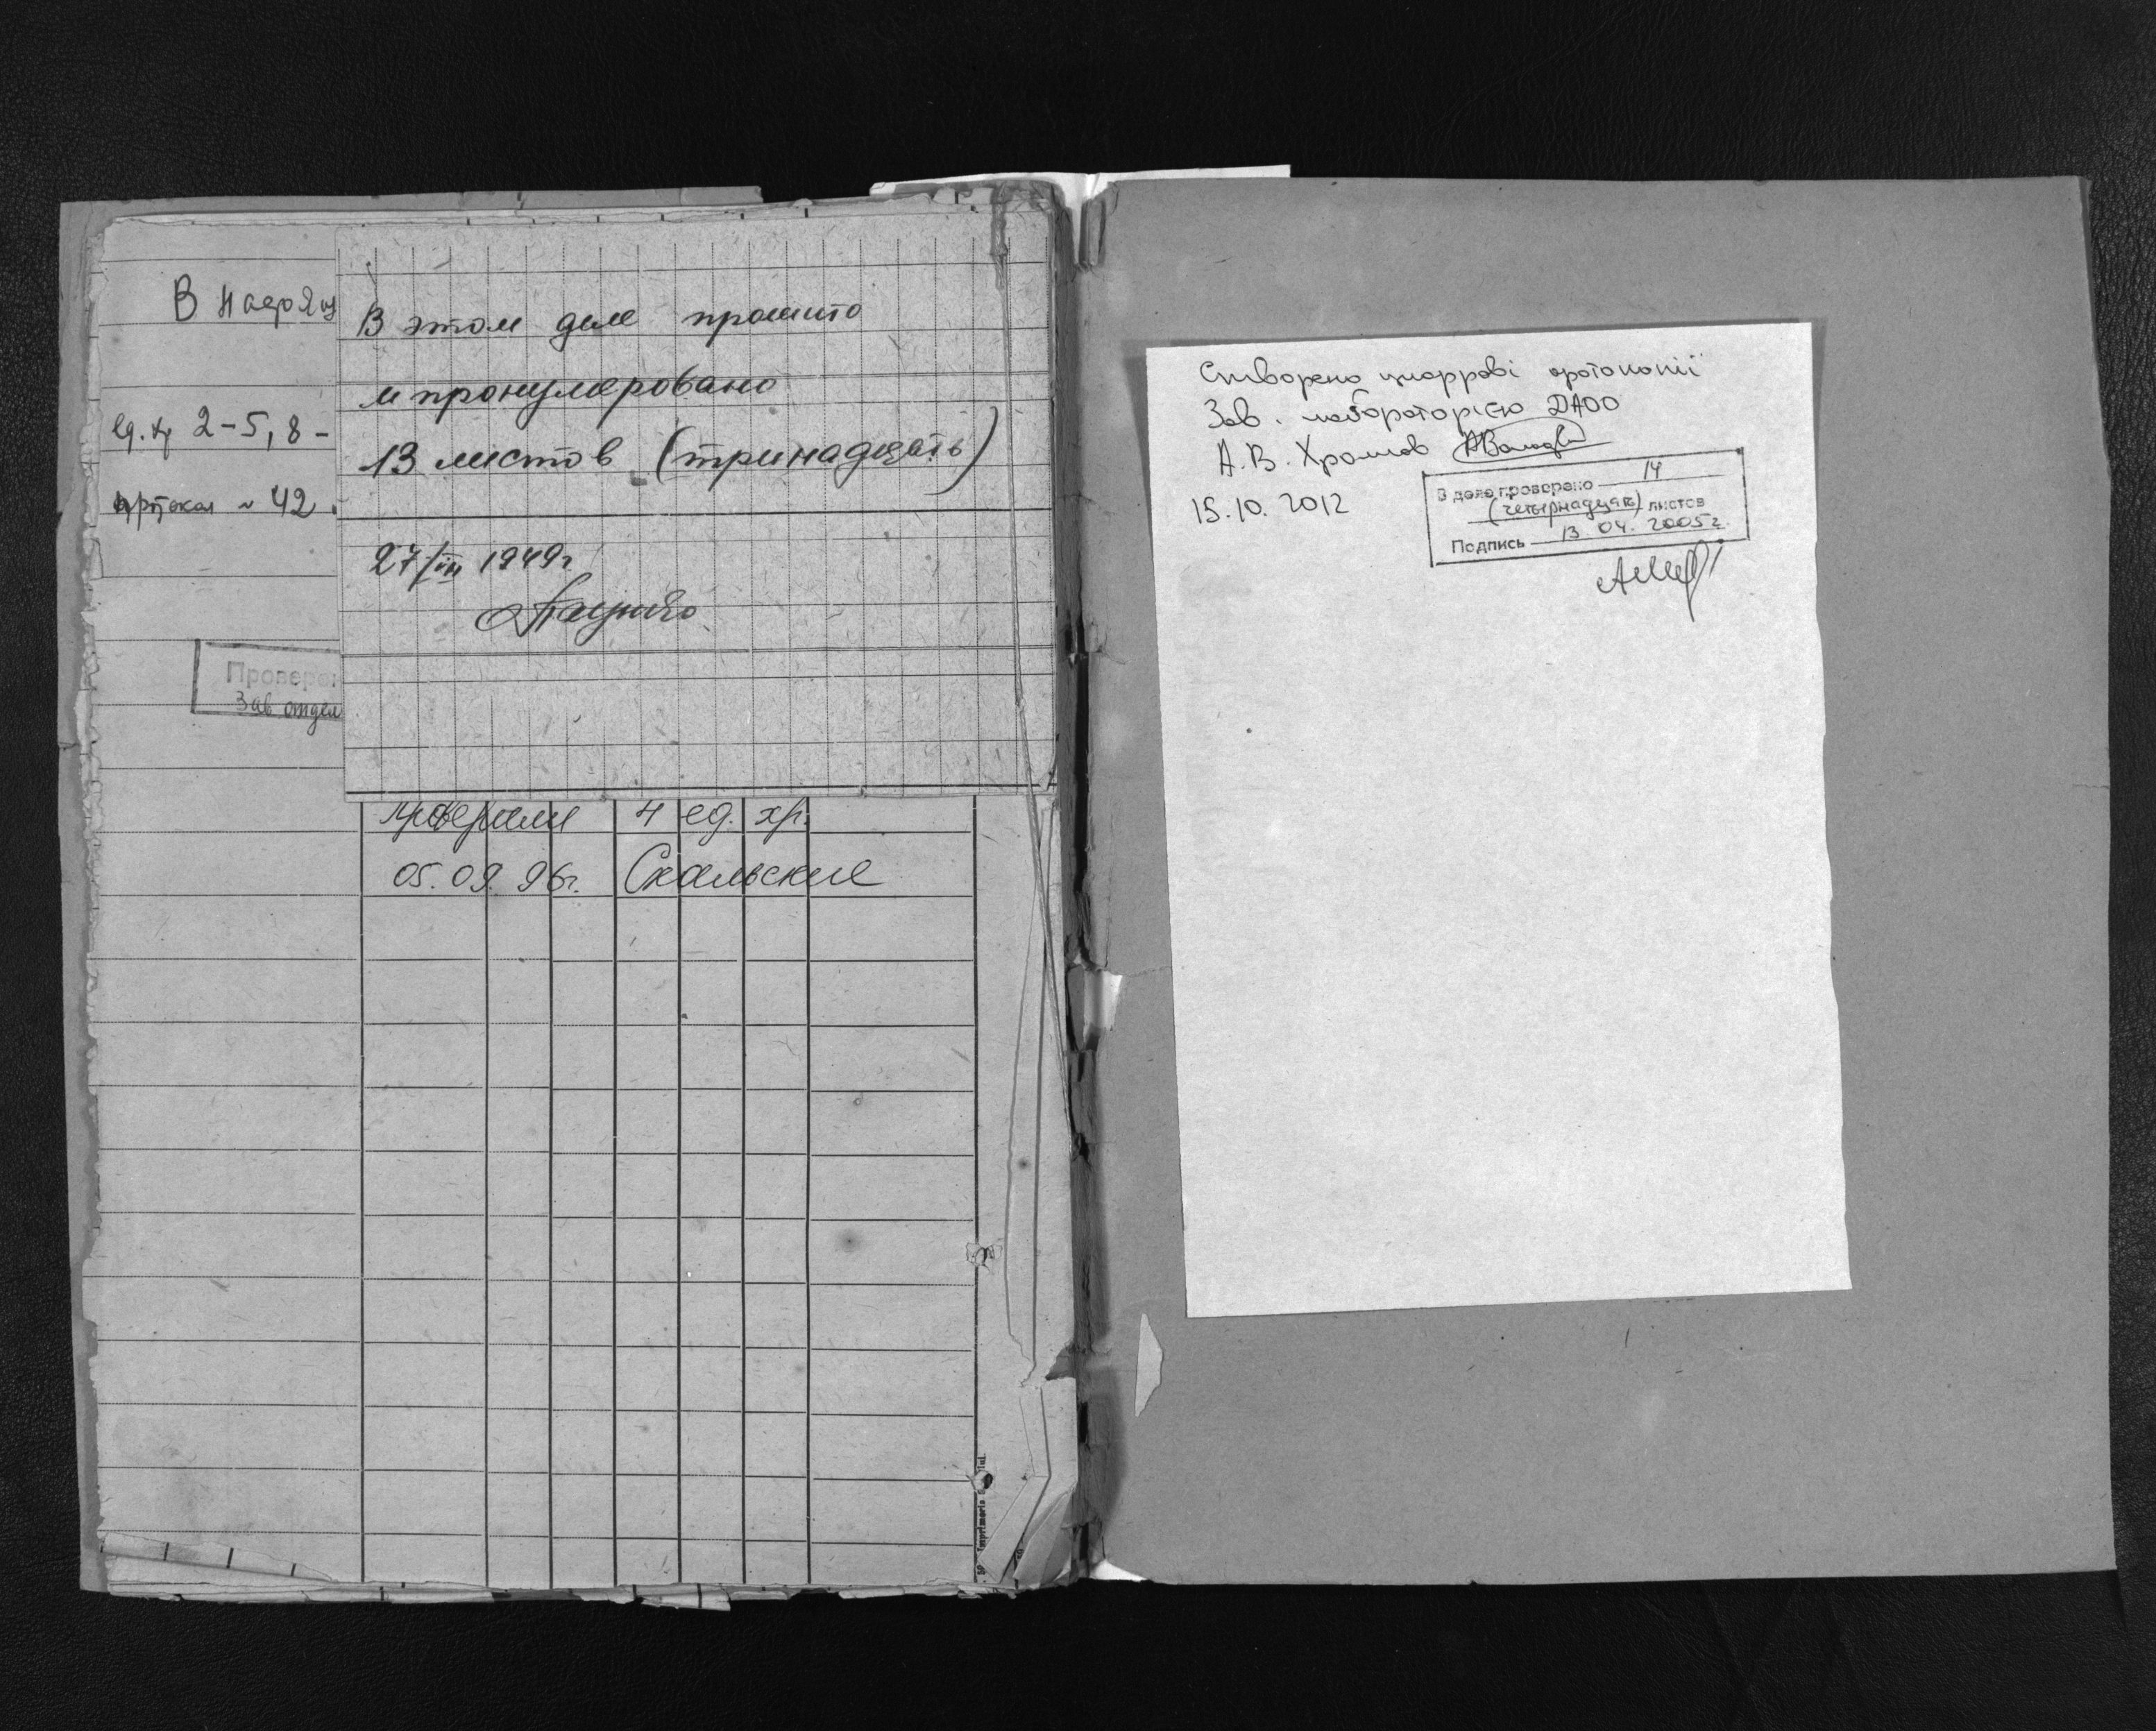 В настоящ
В этом деле прошито
и пронумеровано
13 листов (тринадцать)
27/VIII 1949г.
ед. хр 2-5, 8-
протокол № 42
Проверен
Зав. отдел
проверили 4 ед. хр.
05.09.96г. Скальские
Imprimeria
Створено цифрові фотокопії
Зав. лабораторією ДАОО
А.В. Храмов
15.10.2012
В деле проверено 14
(четырнадцать) листов
Подпись 13.04.2005г.